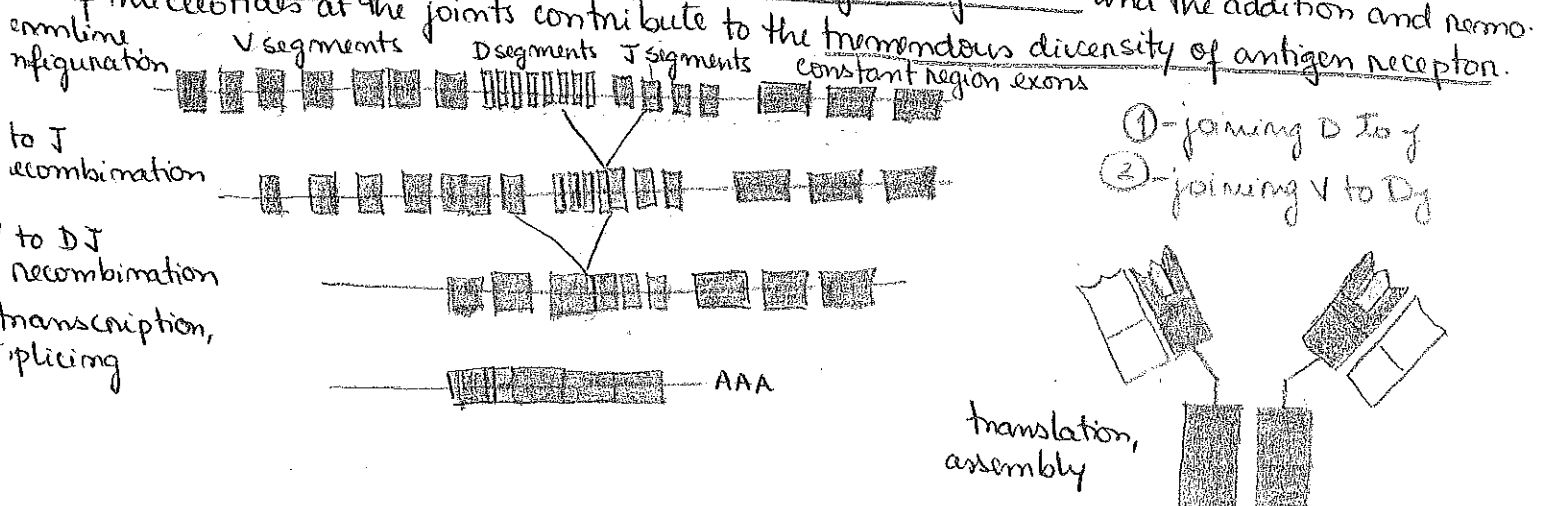 nucleotides at the joints contribute to the tremendous diversity of antigen receptor.
and the addition and remo.
ermline
nfiguration
V segments
D segments
J segments
constant region exons
to J
recombination
①-joining D to J
②-joining V to DJ
to DJ
recombination
transcription,
splicing
AAA
translation,
assembly